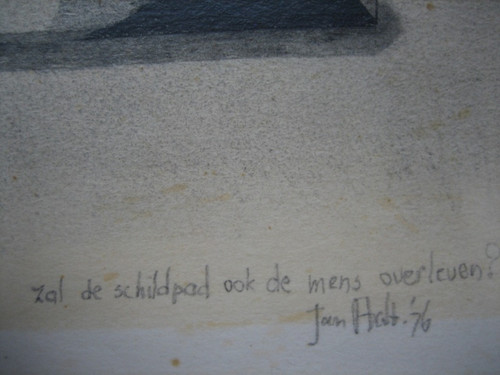 zal de schildpad ook de mens overleven?
Jan '76